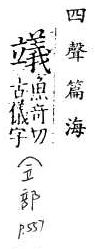 四聲篇海
魚竒切
古儀字
(立部
p.557